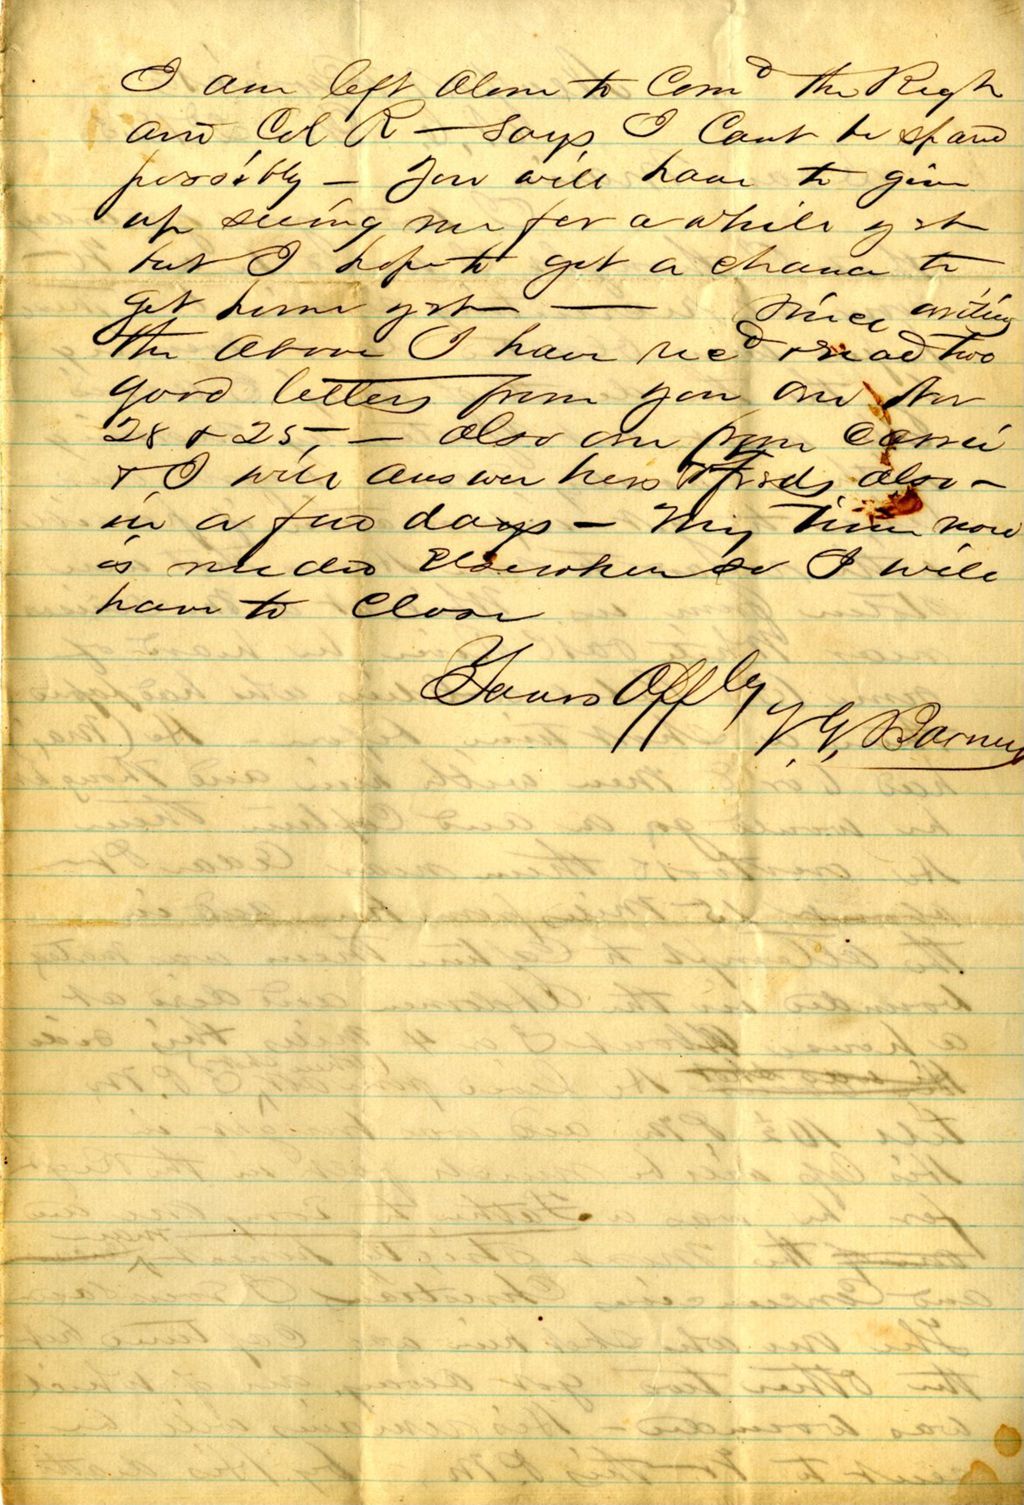 I am left alone to Comd the Regt
and Col R — says I Cant be spared
possibly — You will have to give
up seeing me for a while yet
but I hope to get a chance to
get home yet — — since writing
the above I have recd & read two
good letters from you one Nov
28 & 25, — also one from Carrie
& I will answer hers & Freds also —
in a few days — My Time now
is needed Elsewhere so I will
have to Close
Yours Affly
V. G. Barney